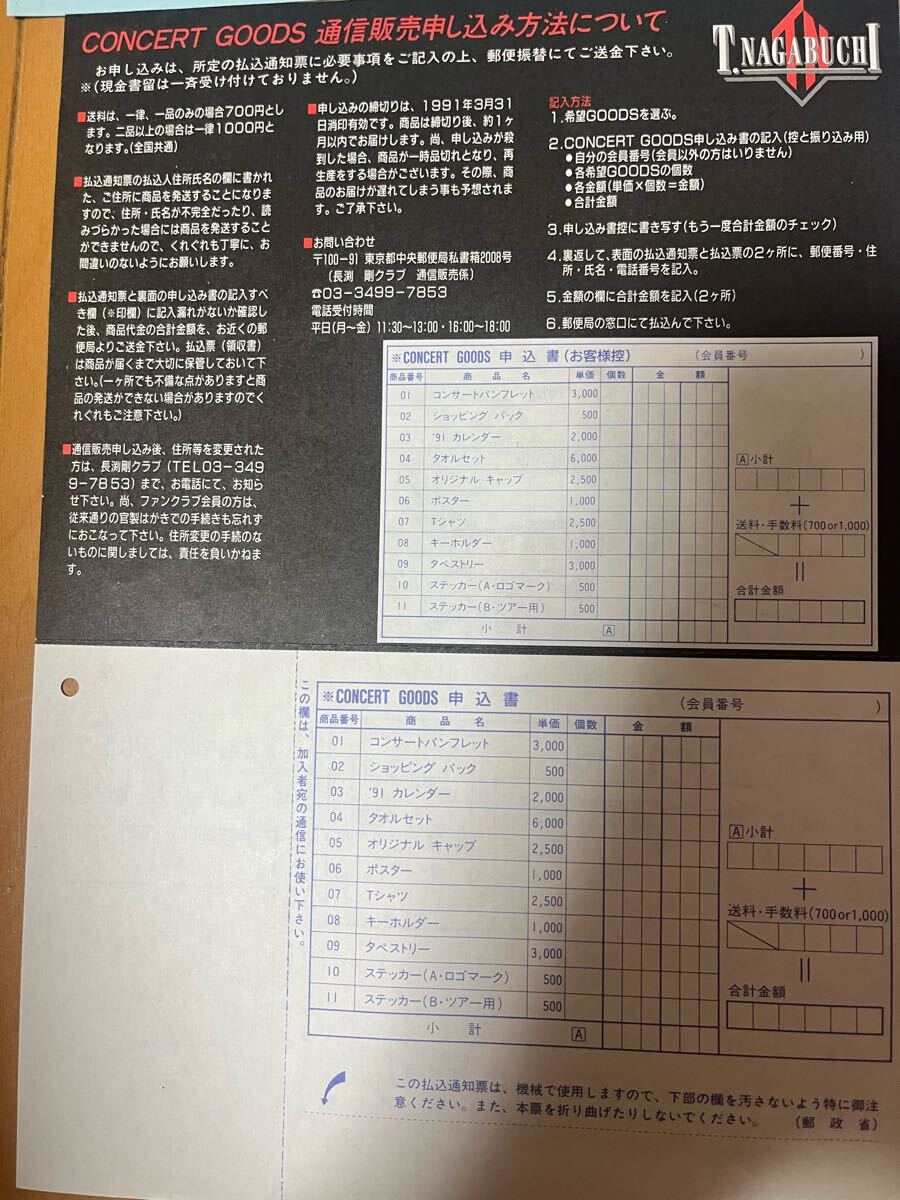 CONCERT GOODS 通信販売申し込み方法について
T.NAGABUCHI
お申し込みは、所定の払込通知票に必要事項をご記入の上、郵便振替にてご送金下さい。
※(現金書留は一斉受け付けておりません。)
■送料は、一律、一品のみの場合700円とし
ます。二品以上の場合は一律1000円と
なります。(全国共通)
■払込通知票の払込人住所氏名の欄に書かれ
た、ご住所に商品を発送することになりま
すので、住所・氏名が不完全だったり、読
みづらかった場合には商品を発送すること
ができませんので、くれぐれも丁寧に、お
間違いのないようにお願いします。
■払込通知票と裏面の申し込み書の記入すべ
き欄(※印欄)に記入漏れがないか確認し
た後、商品代金の合計金額を、お近くの郵
便局よりご送金下さい。払込票(領収書)
は商品が届くまで大切に保管しておいて下
さい。(一ヶ所でも不備な点がありますと商
品の発送ができない場合がありますのでく
れぐれもご注意下さい。)
■通信販売申し込み後、住所等を変更された
方は、長渕剛クラブ(TEL03-349
9-7853)まで、お電話にて、お知ら
せ下さい。尚、ファンクラブ会員の方は、
従来通りの官製はがきでの手続きも忘れず
におこなって下さい。住所変更の手続のな
いものに関しましては、責任を負いかねま
す。
■申し込みの締切りは、1991年3月31
日消印有効です。商品は締切り後、約1ヶ
月以内でお届けします。尚、申し込みが殺
到した場合、商品が一時品切れとなり、再
生産をする場合がございます。その際、商
品のお届けが遅れてしまう事も予想されま
す。ご了承下さい。
■お問い合わせ
〒100-91 東京都中央郵便局私書箱2008号
(長渕 剛クラブ 通信販売係)
☎03-3499-7853
電話受付時間
平日(月〜金) 11:30〜13:00・16:00〜18:00
記入方法
1.希望GOODSを選ぶ。
2.CONCERT GOODS申し込み書の記入(控と振り込み用)
●自分の会員番号(会員以外の方はいりません)
●各希望GOODSの個数
●各金額(単価×個数=金額)
●合計金額
3.申し込み書控に書き写す(もう一度合計金額のチェック)
4.裏返して、表面の払込通知票と払込票の2ヶ所に、郵便番号・住
所・氏名・電話番号を記入。
5.金額の欄に合計金額を記入(2ヶ所)
6.郵便局の窓口にて払込んで下さい。
※CONCERT GOODS 申込書(お客様控) (会員番号 )
商品番号 商品名 単価 個数 金額
01 コンサートパンフレット 3,000
02 ショッピング バック 500
03 '91 カレンダー 2,000
04 タオルセット 6,000
05 オリジナル キャップ 2,500
06 ポスター 1,000
07 Tシャツ 2,500
08 キーホルダー 1,000
09 タペストリー 3,000
10 ステッカー(A・ロゴマーク) 500
11 ステッカー(B・ツアー用) 500
小計 A
A小計
+
送料・手数料(700or1,000)
=
合計金額
この欄は、加入者宛の通信にお使い下さい。
※CONCERT GOODS 申込書 (会員番号 )
商品番号 商品名 単価 個数 金額
01 コンサートパンフレット 3,000
02 ショッピング バック 500
03 '91 カレンダー 2,000
04 タオルセット 6,000
05 オリジナル キャップ 2,500
06 ポスター 1,000
07 Tシャツ 2,500
08 キーホルダー 1,000
09 タペストリー 3,000
10 ステッカー(A・ロゴマーク) 500
11 ステッカー(B・ツアー用) 500
小計 A
A小計
+
送料・手数料(700or1,000)
=
合計金額
この払込通知票は、機械で使用しますので、下部の欄を汚さないよう特に御注
意ください。また、本票を折り曲げたりしないでください。 (郵政省)